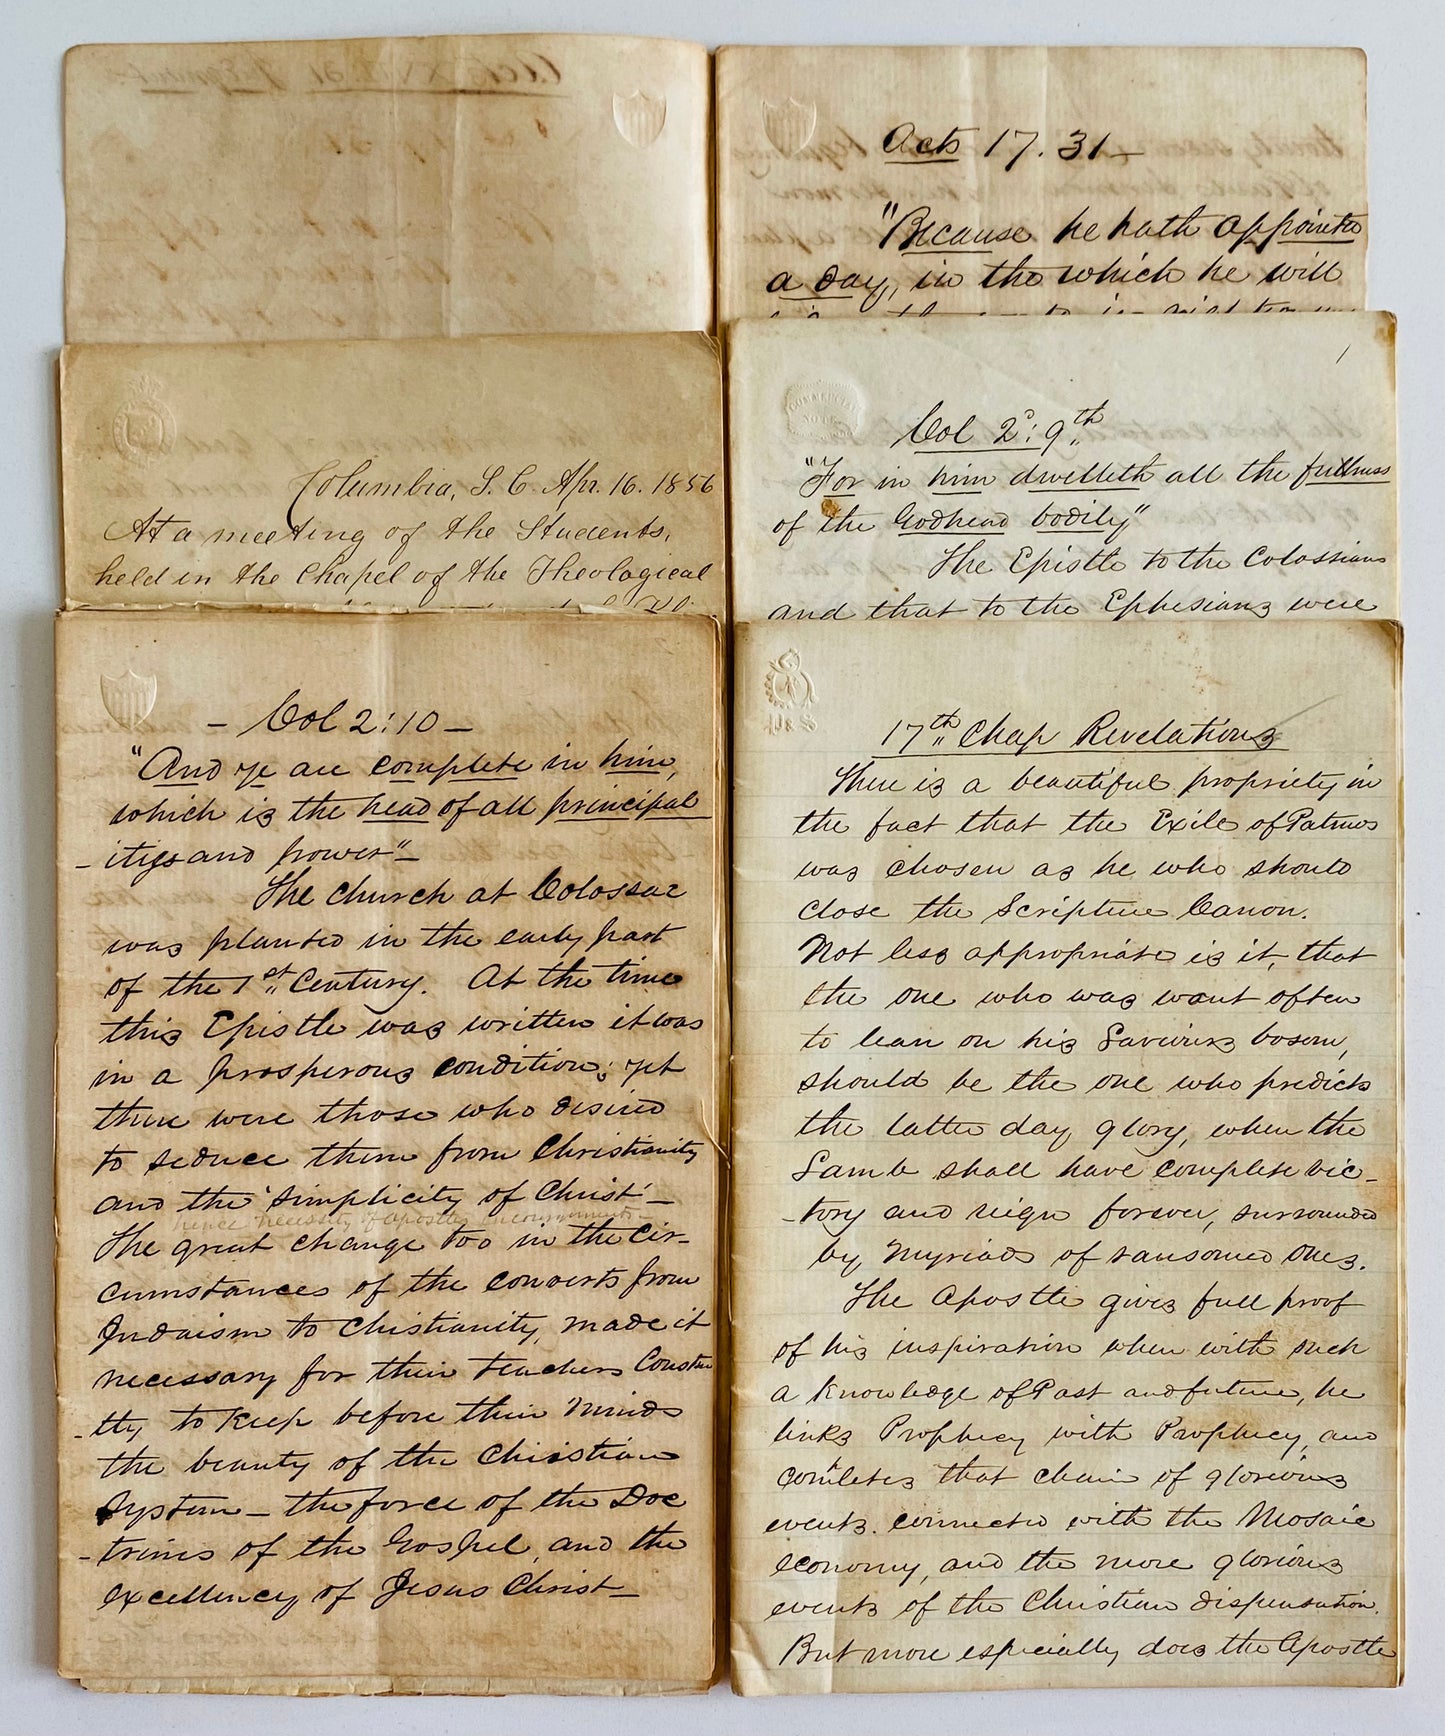 Acts 17. 31 —
"Because he hath appointed
a day, in the which he will
1
Col 2: 9th
"For in him dwelleth all the fullness
of the Godhead bodily"
The Epistle to the Colossians
and that to the Ephesians were
Columbia, S. C. Apr. 16. 1856
At a meeting of the Students,
held in the Chapel of the Theological
— Col 2:10 —
"And ye are complete in him,
which is the head of all principal
- ities and power" —
The church at Colossae
was planted in the early part
of the 1st Century. At the time
this Epistle was written it was
in a prosperous condition; yet
there were those who desired
to seduce them from Christianity
and the 'simplicity of Christ' —
hence necessity of apostle's encouragements —
The great change too in the cir-
cumstances of the converts from
Judaism to Chistianity, made it
necessary for their teachers Constan
- tly to keep before their minds
the beauty of the Christian
System — the force of the Doc
- trines of the Gospel, and the
excellency of Jesus Christ —
17th Chap Revelations
There is a beautiful propriety in
the fact that the Exile of Patmos
was chosen as he who should
close the Scripture Canon.
Not less appropriate is it, that
the one who was wont often
to lean on his Saviours bosom,
should be the one who predicts
the latter day glory, when the
Lamb shall have complete vic-
- tory and reign forever, surrounded
by myriads of ransomed ones.
The Apostle gives full proof
of his inspiration when with such
a knowledge of Past and future, he
links Prophecy with Prophecy, and
completes that chain of glorious
events connected with the Mosaic
economy, and the more glorious
events of the Christian dispensation.
But more especially does the Apostle